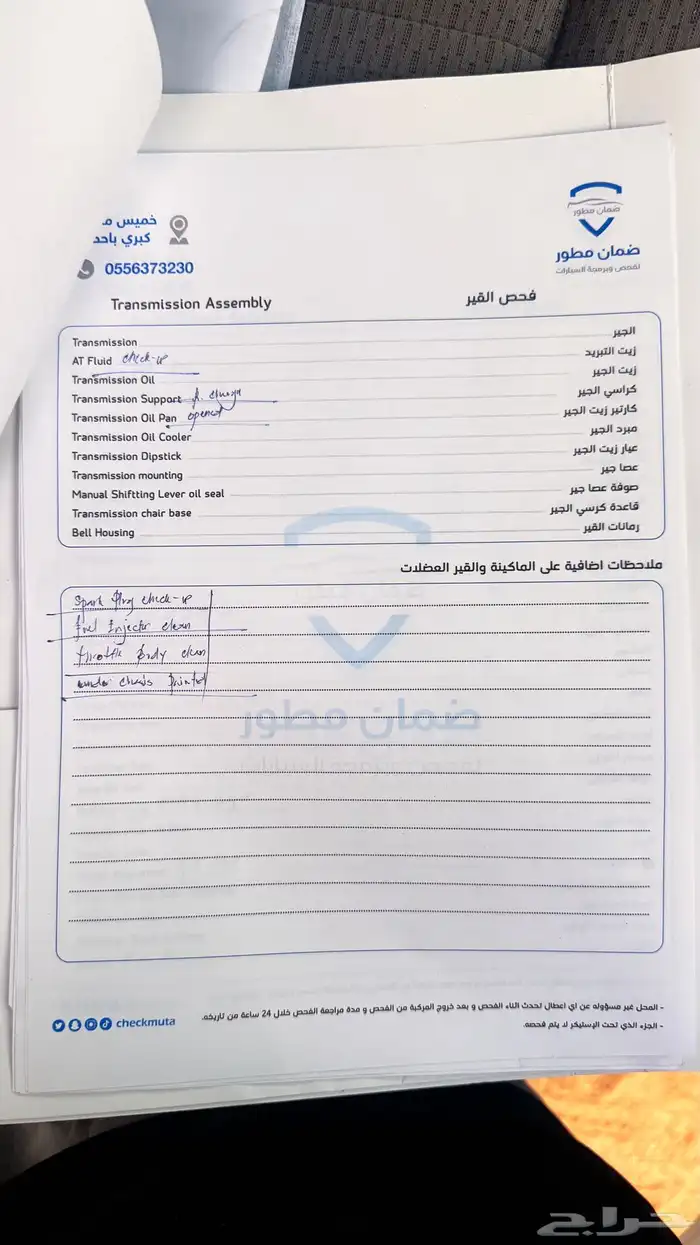 خميس مـ
كبري باحد
0556373230
ضمان مطور
ضمان مطور
لفحص وبرمجة السيارات
Transmission Assembly
فحص القير
Transmission الجير
AT Fluid check-up زيت التبريد
Transmission Oil زيت الجير
Transmission Support كراسي الجير
Transmission Oil Pan opened كارتير زيت الجير
Transmission Oil Cooler مبرد الجير
Transmission Dipstick عيار زيت الجير
Transmission mounting عصا جير
Manual Shiftting Lever oil seal صوفة عصا جير
Transmission chair base قاعدة كرسي الجير
Bell Housing رمانات القير
ملاحظات اضافية على الماكينة والقير العضلات
Spark Plug check-up
fuel Injector clean
throttle Body clean
under chasis painted
ضمان مطور
- المحل غير مسؤوله عن اي اعطال تحدث اثناء الفحص و بعد خروج المركبة من الفحص و مدة مراجعة الفحص خلال 24 ساعة من تاريخه.
- الجزء الذي تحت الإستيكر لا يتم فحصه.
checkmuta
حراج